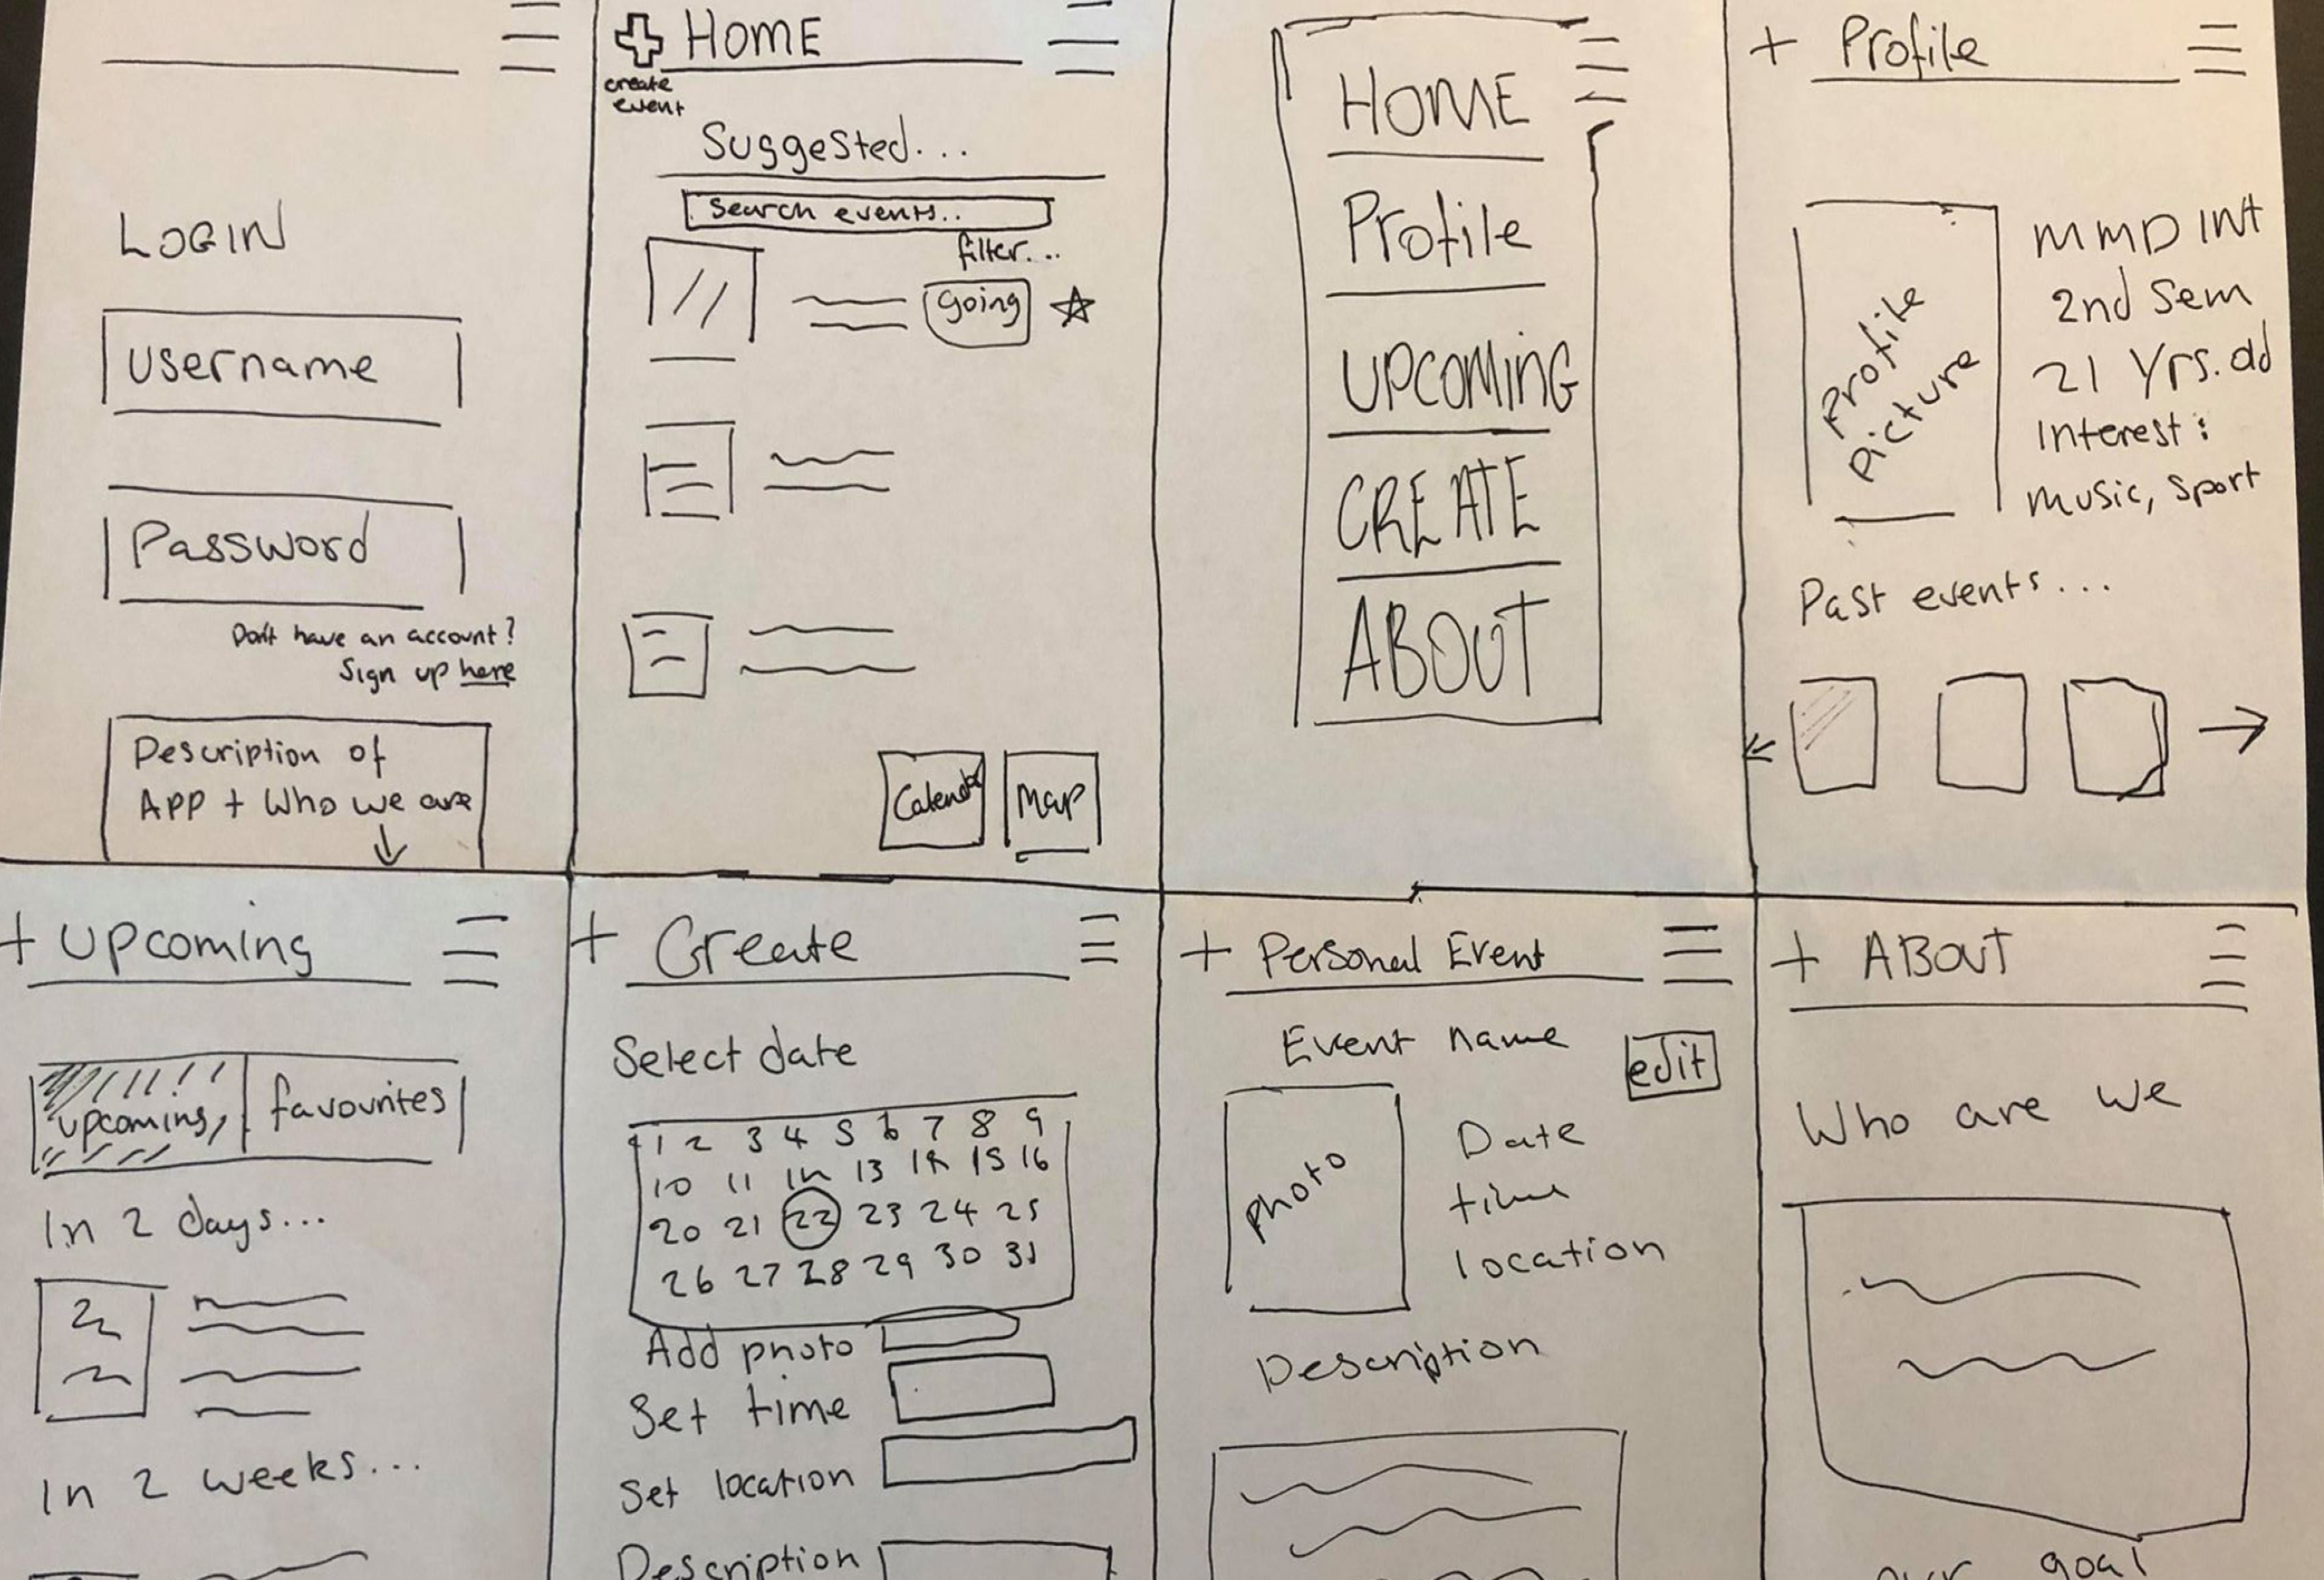 LOGIN
username
Password
Don't have an account?
Sign up here
Description of
APP + Who we are
HOME
create
event
Suggested...
search events..
filter...
going
Calendar
Map
HOME
Profile
UPCOMING
CREATE
ABOUT
+ Profile
Profile
Picture
MMD INT
2nd Sem
21 Yrs. old
Interest:
music, sport
Past events...
+ upcoming
upcoming
favourites
In 2 days...
In 2 weeks...
+ Create
Select date
1 2 3 4 5 6 7 8 9
10 11 13 15 16
20 21 22 23 24 25
26 27 28 29 30 31
Add photo
Set time
Set location
Description
+ Personal Event
Event name
edit
photo
Date
time
location
Description
+ ABOUT
Who are we
our goal